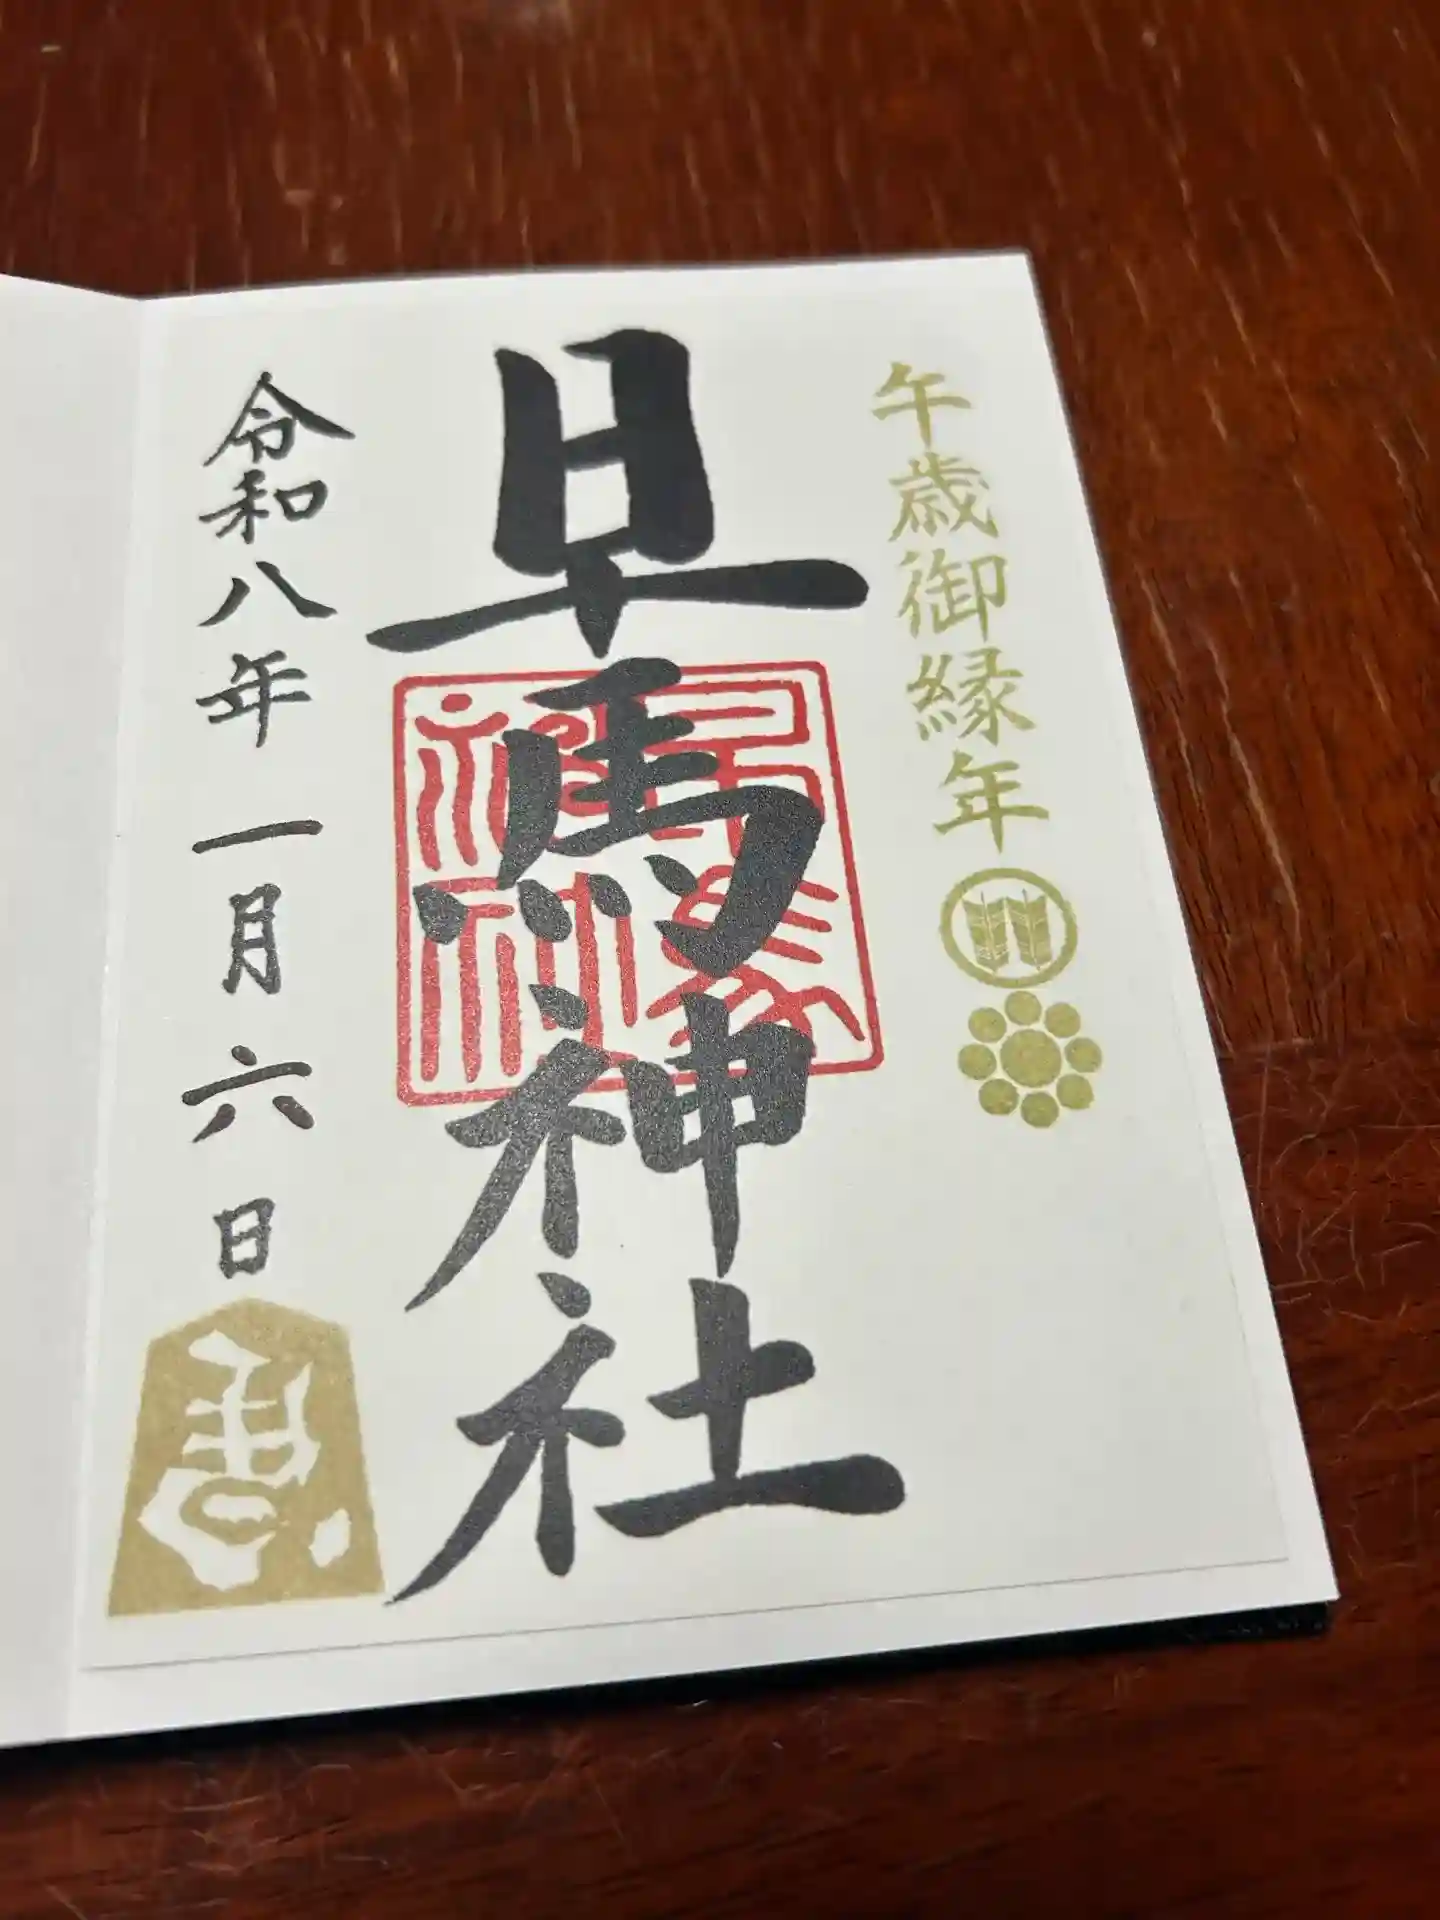 午歳御縁年
早馬神社
早馬神社
令和八年一月六日
馬